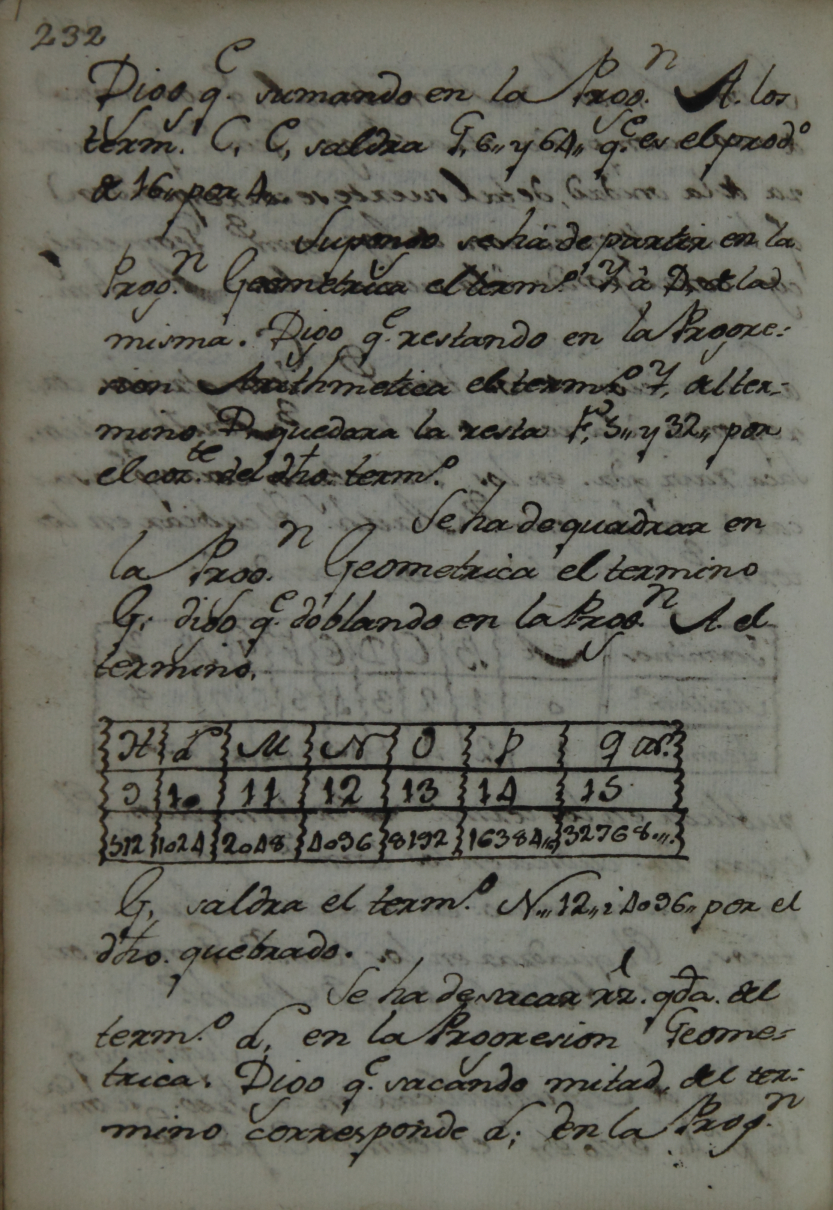 232
Digo q.^e sumando en la Prog.^n A. los
term.^s C, E, saldra G, 6,, y 64,, q.^e es el prod.^o
de 16,, por 4,,
Supongo se há de partir en la
Prog.^n Geometrica el term.^o Y, à D, de la
misma. Digo q.^e restando en la Progre:
sion Arithmetica el term.^o Y, al ter-
mino D, quedara la resta F, 5,, y 32,, por
el cor.^te del dho. term.^o
Se ha de quadrar en
la Prog.^n Geometrica el termino
G; digo q.^e doblando en la Prog.^n A. el
termino.
H d M N O P q ar.^s
9 10 11 12 13 14 15
512 1024 2048 4096 8192 16384,, 32768....
G, saldra el term.^o N,,, 12,, i 4096,, por el
dho. quebrado.
Se ha de sacar rz. qda. del
term.^o d, en la Progresion Geome-
trica. Digo q.^e sacando mitad, del ter-
mino corresponde d; en la Prog.^n